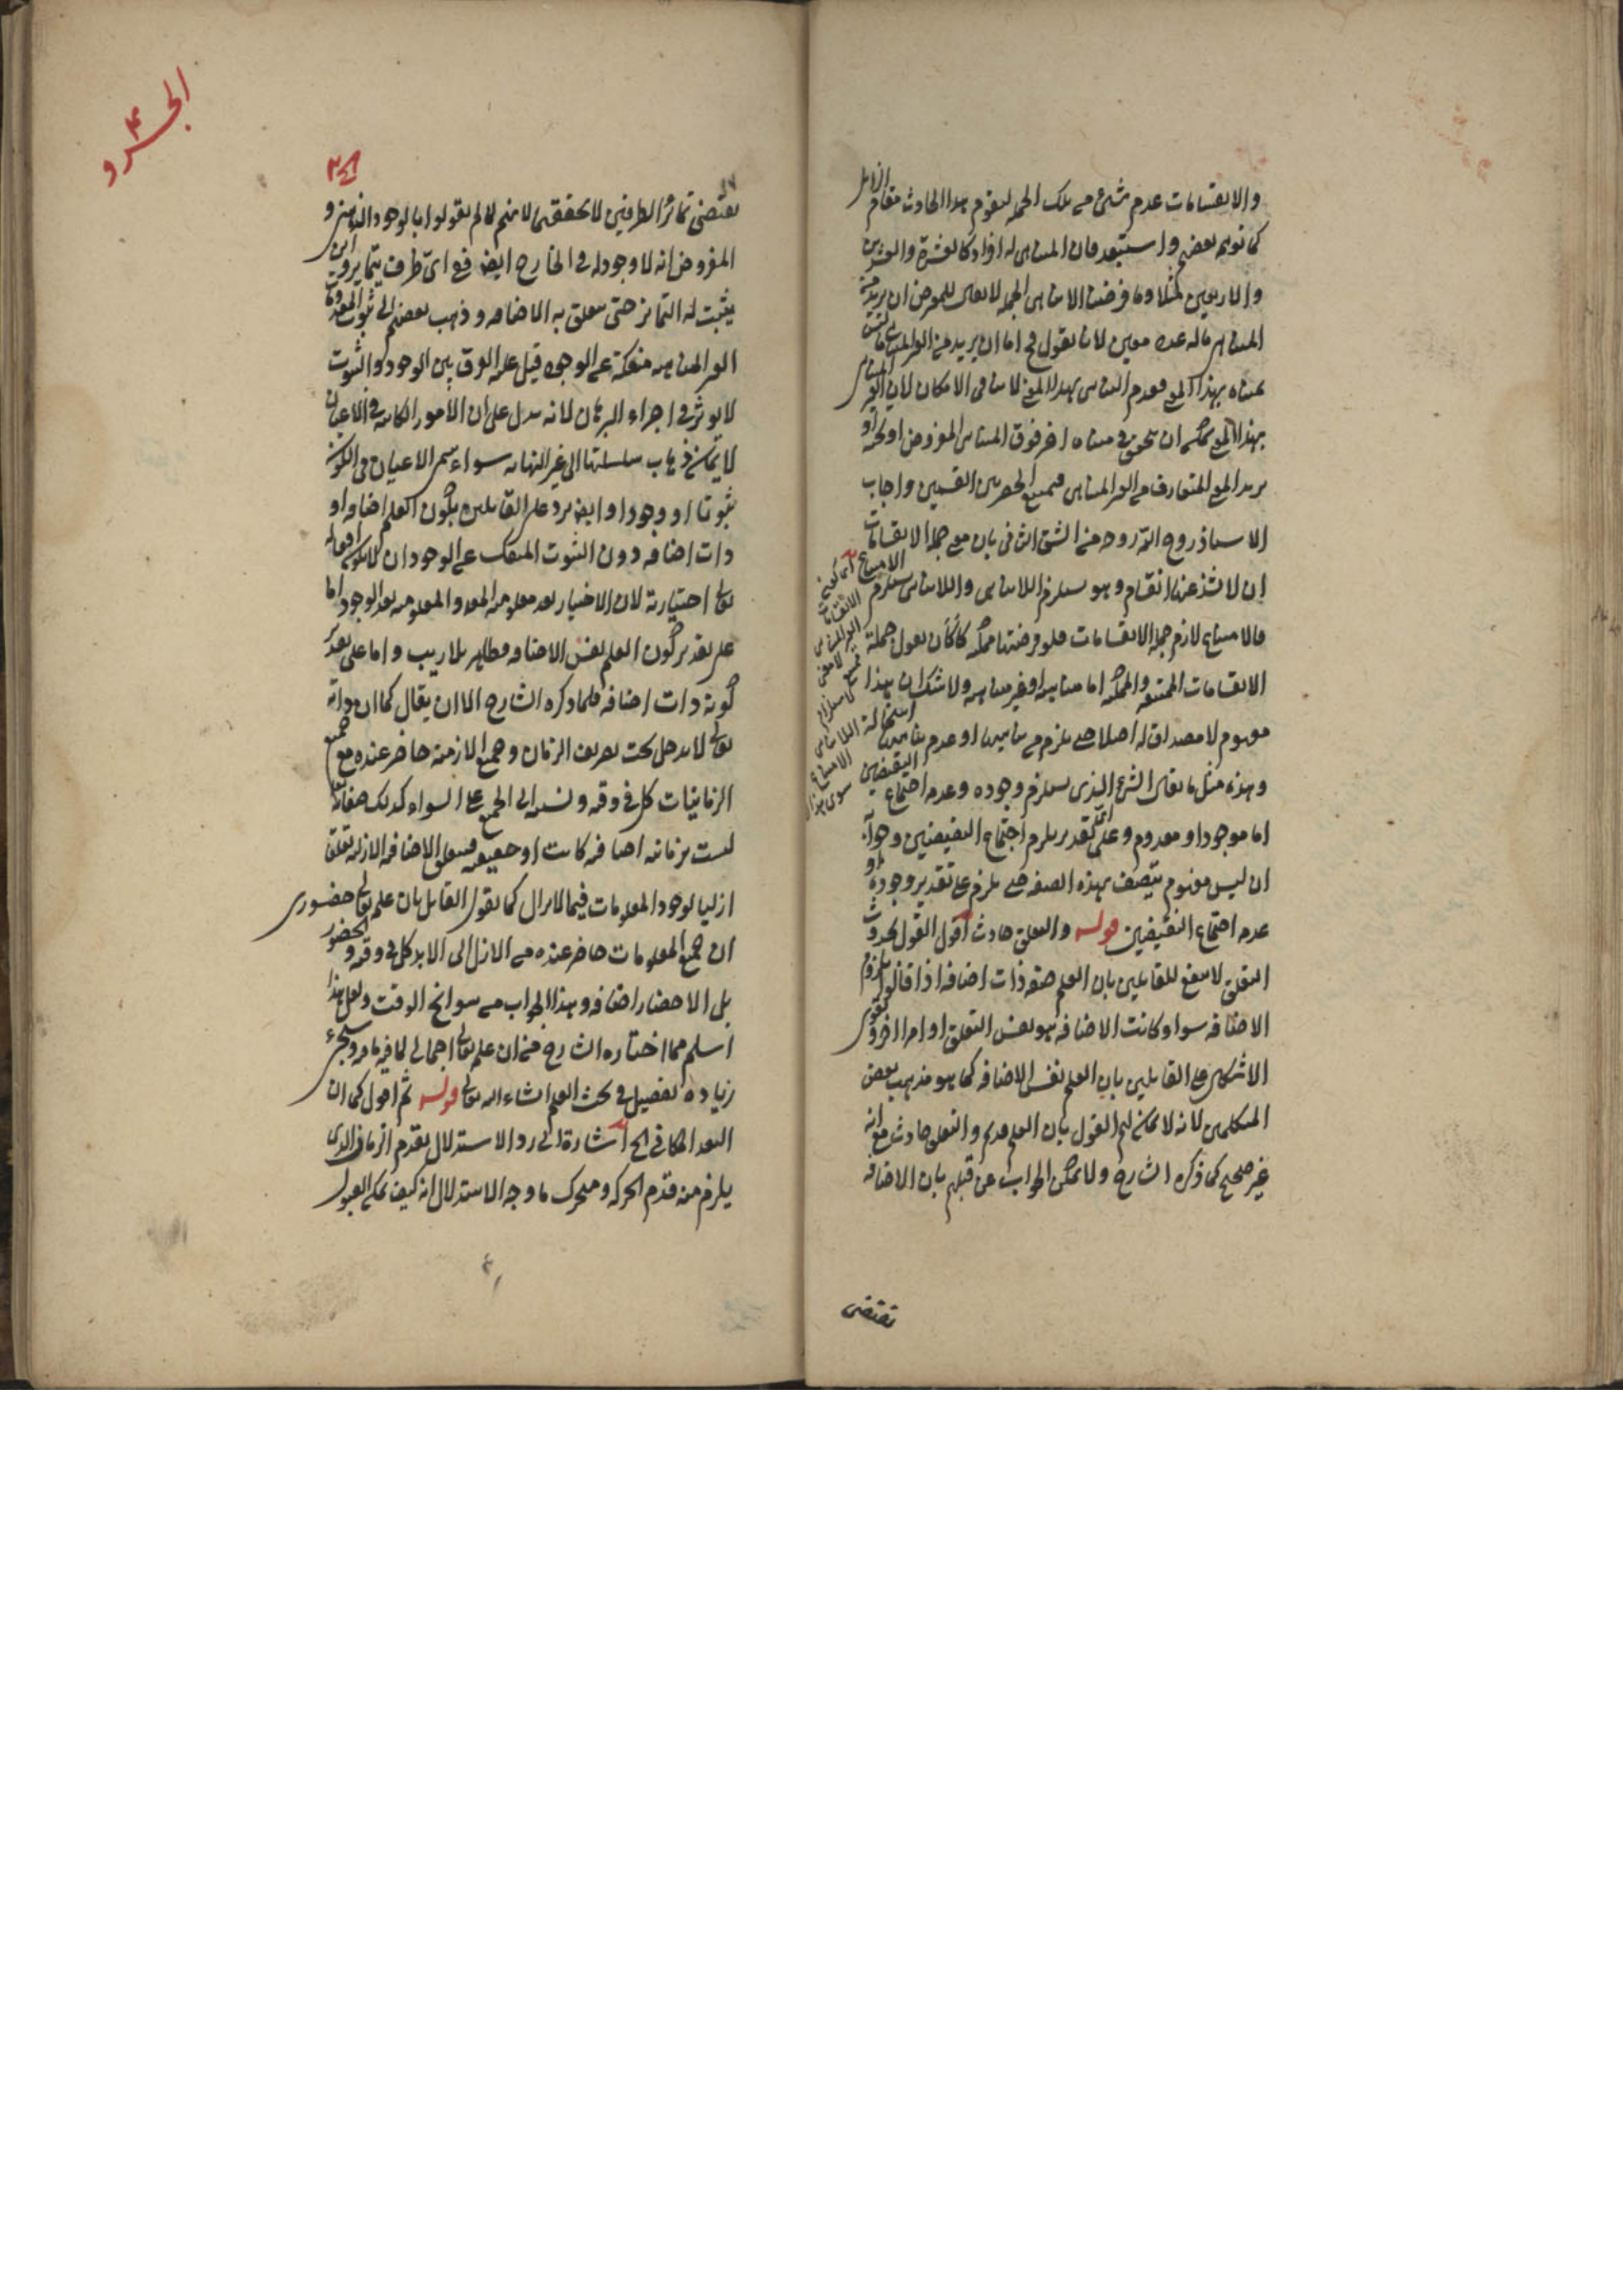 والانقسامات عدم شئ من تلك الجملة ليقوم هذا الحادث مقام الزائل
كما توهمه بعضهم واستبعد فان المتناهى له افراد كالعشرة والعشرين
والاربعين مثلا وما فرضت الامتناهى الجملة لا يقال للمعترض ان يريد من
المتناهى ماله عدد معين لانا نقول ح اما ان يريد من الغير المتناهى ما ليس
بهذا المعنى فعدم التناهى بهذا المعنى لا ينافى الامكان لان الغير المتناهى
بهذا المعنى يمكن ان يتحقق فى متناه اخر فوق المتناهى المفروض او تحته او
يريد المعنى المتعارف من الغير المتناهى فيمنع الحصر بين القسمين واجاب
الاستاذ روح الله روحه من الشق الثانى بان معنى جملة الانقسامات
ان لا شذ عنها انقسام وهو يستلزم اللاتناهى واللاتناهى يستلزم الامتناع
فالامتناع لازم جملة الانقسامات فلو فرضتها ممكنة كان كأن يقول جملة
الانقسامات الممتنعة والممكنة اما متناهية او غير متناهية ولا شك ان هذا
مفهوم لا مصداق له اصلا حتى يلزم من تناهيها او عدم تناهيها استحالة
وهذه مثل ما يقال الشئ الذى يستلزم وجوده وعدمه اجتماع النقيضين
اما موجود او معدوم وعلى اى تقدير يلزم اجتماع النقيضين وجوابه
ان ليس مفهوم يتصف بهذه الصفة حتى يلزم على تقدير وجوده او
عدمه اجتماع النقيضين قوله والتعلق حادث اقول القول بحدوث
التعلق لا ينفع للقائلين بان العلم صفة ذات اضافة اذا قالوا بلزوم
الاضافة سواء كانت الاضافة هو نفس التعلق او امرا اخر و يقوى
الاشكال على القائلين بان العلم نفس الاضافة كما هو مذهب بعض
المتكلمين لانه لا يمكن لهم القول بان العلم قديم والتعلق حادث مع انه
غير صحيح كما ذكره الشارح ولا يمكن الجواب من قبلهم بان الاضافة
تقتضى
يقتضى تمايز الطرفين لا تحققهما لانهم لما لم يقولوا بالوجود الذهنى و
المفروض انه لا وجود له فى الخارج ايضا فعى اى ظرف يتمايز واين
يثبت له التمايز حتى يتعلق به الاضافة وذهب بعضهم الى ثبوت المعدومات
الغير المتناهية منفكة عن الوجود قيل عليه الفرق بين الوجود والثبوت
لا يؤثر فى اجراء البرهان لانه يدل على ان الامور الكائنة فى الاعيان
لا يمكن ذهاب سلسلتها الى غير النهاية سواء سمى الاعيان فى الكون
ثبوتا او وجودا وايضا يرد على القائلين بكون العلم اضافة او
ذات اضافة دون الثبوت المنفك عن الوجود ان لا يكون افعاله
تعالى اختيارية لان الاختيار بعد معلومية المعدوم والمعلومية بعد الوجود اما
على تقدير كون العلم نفس الاضافة فظاهر بلا ريب واما على تقدير
كونه ذات اضافة فلما ذكره الشارح الا ان يقال كما ان ذاته
تعالى لا يدخل تحت تصريف الزمان وجميع الازمنة حاضر عنده مع جميع
الزمانيات كل فى وقته ونسبته الى الجميع على السواء كذلك صفاته
ليست بزمانية اضافية كانت او حقيقية فيتعلق الاضافة الازلية تعلقا
ازليا لوجود المعلومات فيما لا يزال كما يقول القائل بان علمه تعالى حضورى
ان جميع المعلومات حاضر عنده من الازل الى الابد كل فى وقته و الحضور
بل الاحضار اضافة وهذا الجواب من سوانح الوقت ولعل هذا
اسلم مما اختاره الشارح من ان علمه تعالى اجمالى لما فيه ما فيه وسيجئ
زيادة تفصيل فى بحث العلم ان شاء الله تعالى قوله ثم اقول كما ان
البعد المكانى الخ اشارة الى رد الاستدلال بقدم الزمان الذى
يلزم منه قدم الحركة ومتحرك ما وجه الاستدلال انه كيف يمكن القبول